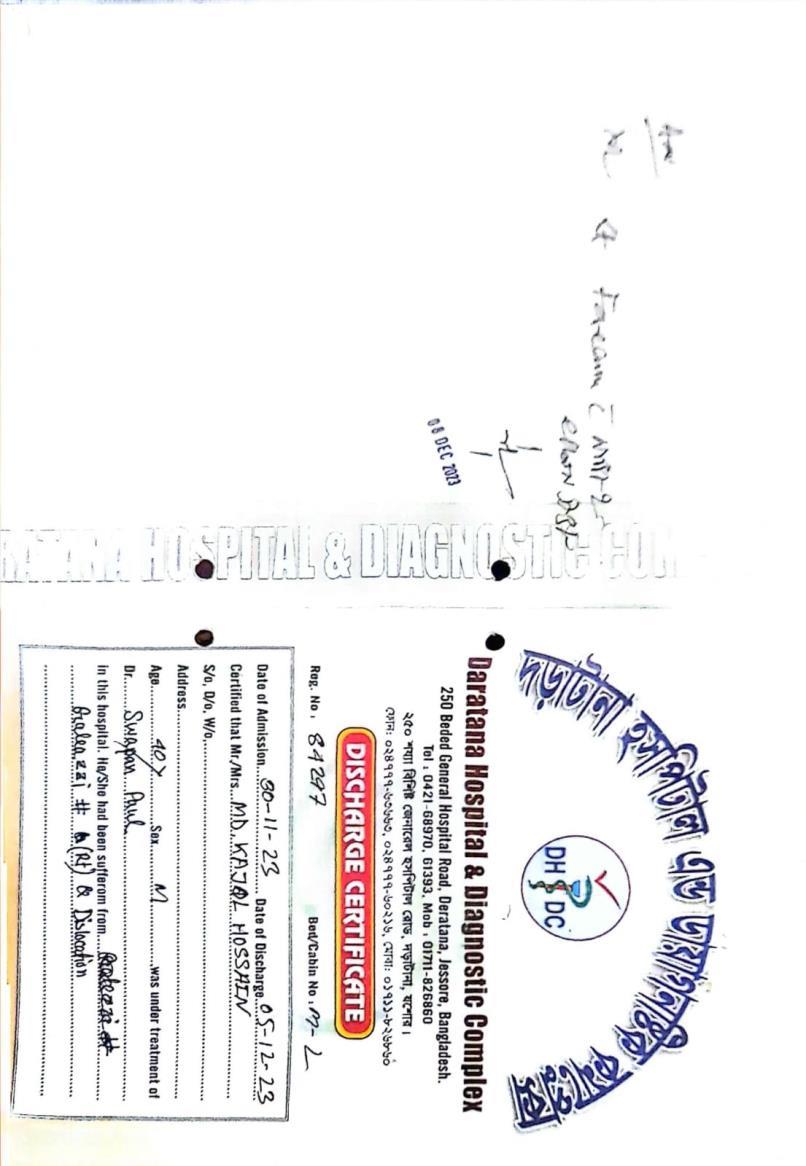 দড়াটানা হসপিটাল এন্ড ডায়াগনষ্টিক কমপ্লেক্স
DH DC
Daratana Hospital & Diagnostic Complex
250 Beded General Hospital Road, Deratana, Jessore, Bangladesh.
Tel : 0421-68970, 61393, Mob : 01711-826860
২৫০ শয্যা বিশিষ্ট জেনারেল হসপিটাল রোড, দড়াটানা, যশোর।
ফোন: ০২৪৭৭৭-৬০৬৬০, ০২৪৭৭৭-৬০২১৬, মোবা: ০১৭১১-৮২৬৮৬০
DISCHARGE CERTIFICATE
Reg. No : 84297 Bed/Cabin No : M-L
Date of Admission 30-11-23 Date of Discharge 05-12-23
Certified that Mr/Mrs. MD. KAJOL HOSSAIN
S/o, D/o, W/o
Address
Age 40Y Sex M was under treatment of
Dr. Swapan Paul
in this hospital. He/She had been sufferom from
Galeazzi # (Rt) & Dislocation
RATANA HOSPITAL & DIAGNOSTIC COM
08 DEC 2023